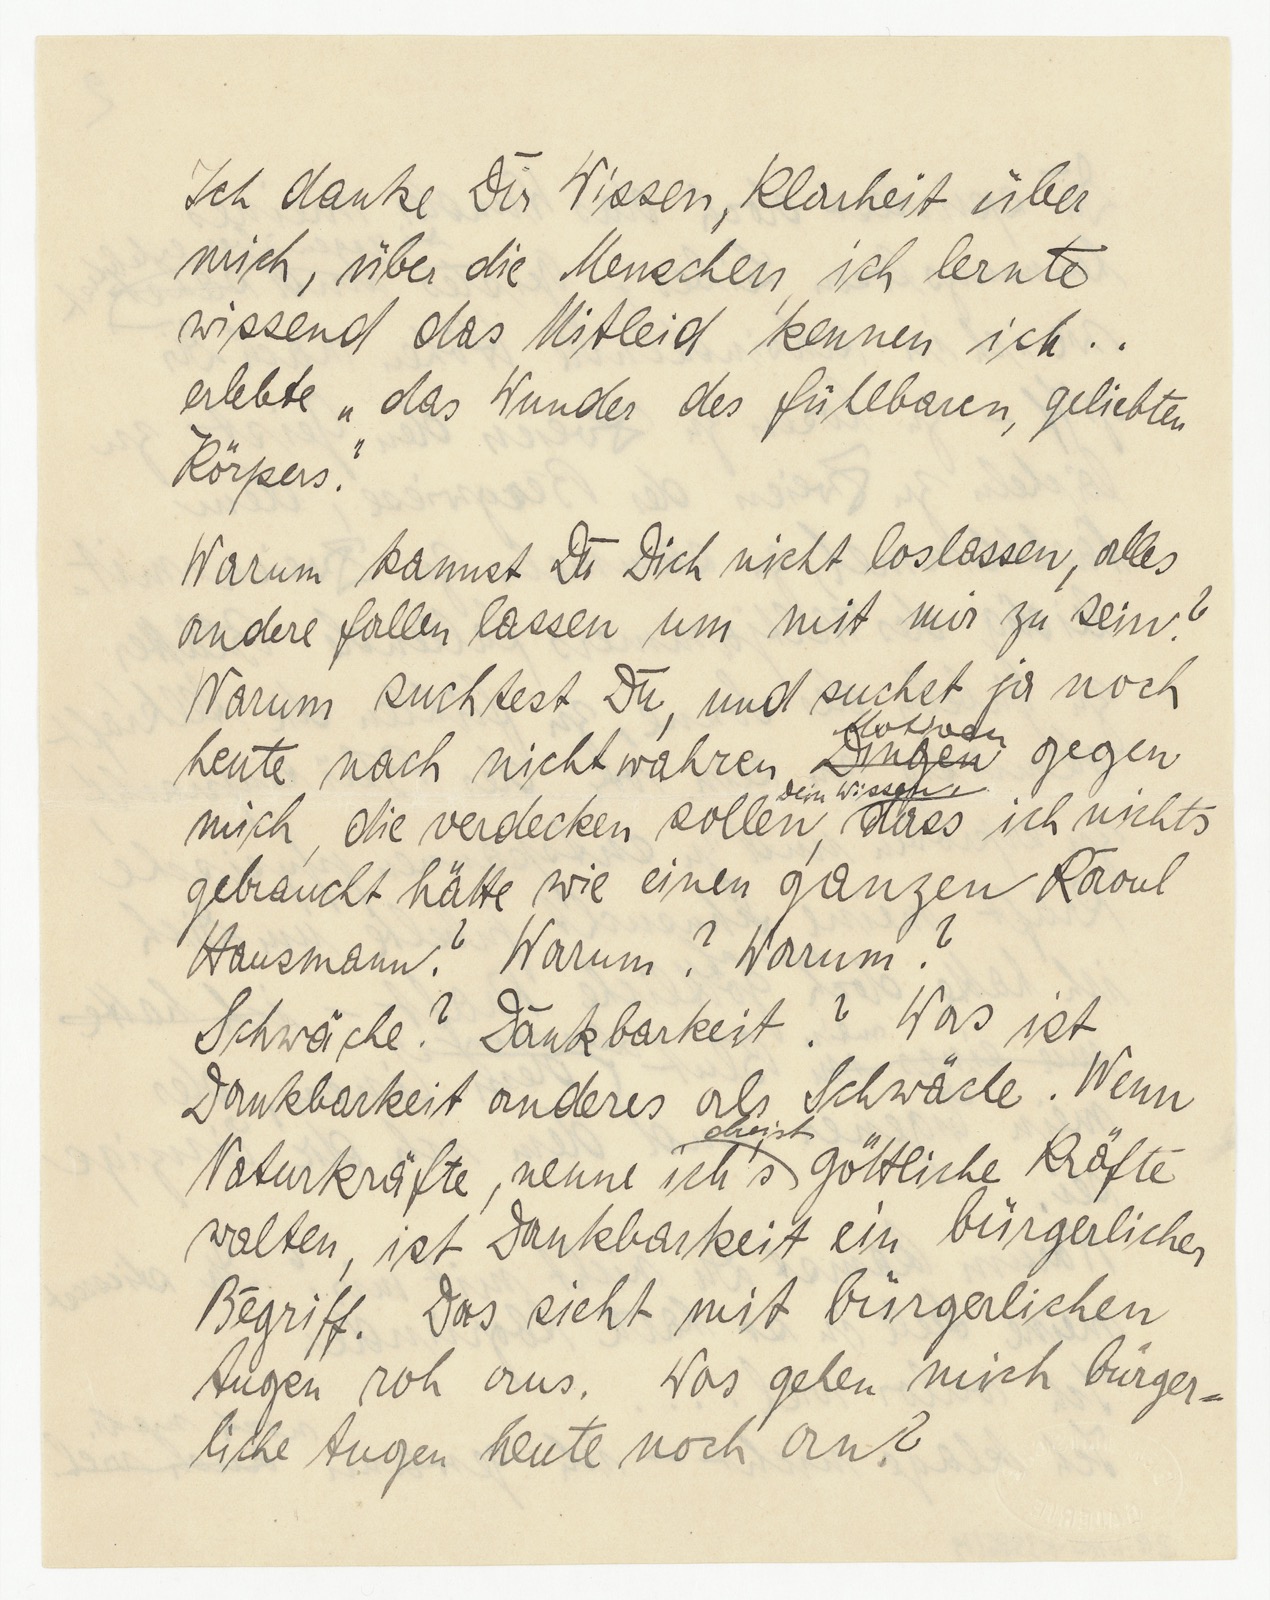 Ich danke Dir Wissen, Klarheit über
mich, über die Menschen, ich lernte
wissend das Mitleid kennen ich ..
erlebte „das Wunder des fühlbaren, geliebten
Körpers."
Warum kannst Du Dich nicht loslassen, alles
andere fallen lassen um mit mir zu sein?
Warum suchtest Du, und suchst ja noch
Motiven
heute nach nicht wahren Dingen gegen
Dein Wissen,
mich, die verdecken sollen, dass ich nichts
gebraucht hätte wie einen ganzen Raoul
Hausmann? Warum? Warum?
Schwäche? Dankbarkeit? Was ist
Dankbarkeit anderes als Schwäche. Wenn
Naturkräfte, nenne ich's göttliche Kräfte
walten, ist Dankbarkeit ein bürgerlicher
Begriff. Das sieht mit bürgerlichen
Augen roh aus. Was gehen mich bürger=
liche Augen heute noch an?